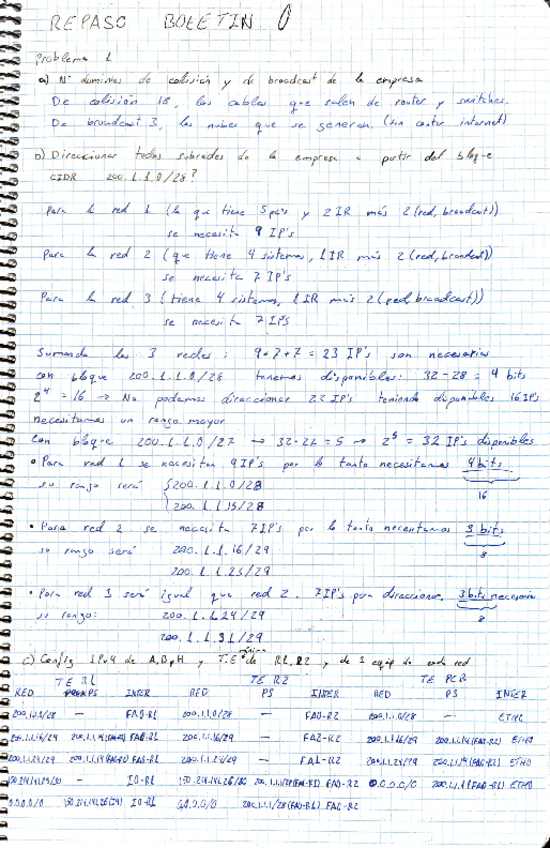 REPASO BOLETIN 0
Problema 1
a) Nº dominios de colisión y de broadcast de la empresa
De colisión 18, los cables que salen de router y switches.
De broadcast 3, las nubes que se generan. (sin contar internet)
b) Direccionar todas subredes de la empresa a partir del bloque
CIDR 200.1.1.0/28?
Para la red 1 (la que tiene 5 pc's y 2 IR más 2 (red, broadcast))
se necesita 9 IP's
Para la red 2 (que tiene 4 sistemas, 1 IR más 2 (red, broadcast))
se necesita 7 IP's
Para la red 3 (tiene 4 sistemas, 1 IR más 2 (red, broadcast))
se necesita 7 IPS
Sumando las 3 redes: 9+7+7 = 23 IP's son necesarias
con bloque 200.1.1.0/28 tenemos disponibles: 32-28 = 4 bits
2^4 = 16 → No podemos direccionar 23 IP's teniendo disponibles 16 IP's
necesitamos un rango mayor
Con bloque 200.1.1.0/27 → 32-27 = 5 → 2^5 = 32 IP's disponibles
• Para red 1 se necesitan 9 IP's por lo tanto necesitamos 4 bits
su rango será 200.1.1.0/28
16
200.1.1.15/28
• Para red 2 se necesita 7 IP's por lo tanto necesitamos 3 bits
su rango será 200.1.1.16/29
8
200.1.1.23/29
• Para red 3 será igual que red 2. 7 IP's para direccionar. 3 bits necesarios
su rango: 200.1.1.24/29
8
200.1.1.31/29
c) Config IPv4 de A, B y H y T.E de R1, R2, y de 1 equip de cada red
TE R1 TE R2 TE PCB
RED PS INTER RED PS INTER RED PS INTER
200.1.1.0/28 — FA0-R1 200.1.1.0/28 — FA0-R2 200.1.1.0/28 — ETH0
200.1.1.16/29 FA0-R1 200.1.1.16/29 — FA2-R2 200.1.1.16/29 200.1.1.14 (FA0-R2) ETH0
200.1.1.24/29 200.1.1.14 (FA0-R2) FA0-R1 200.1.1.24/29 — FA1-R2 200.1.1.24/29 200.1.1.14 (FA0-R2) ETH0
— IO-R1 FA0-R2 0.0.0.0/0 (FA0-R1) ETH0
0.0.0.0/0 IO-R1 0.0.0.0/0 (FA0-R1) FA0-R2